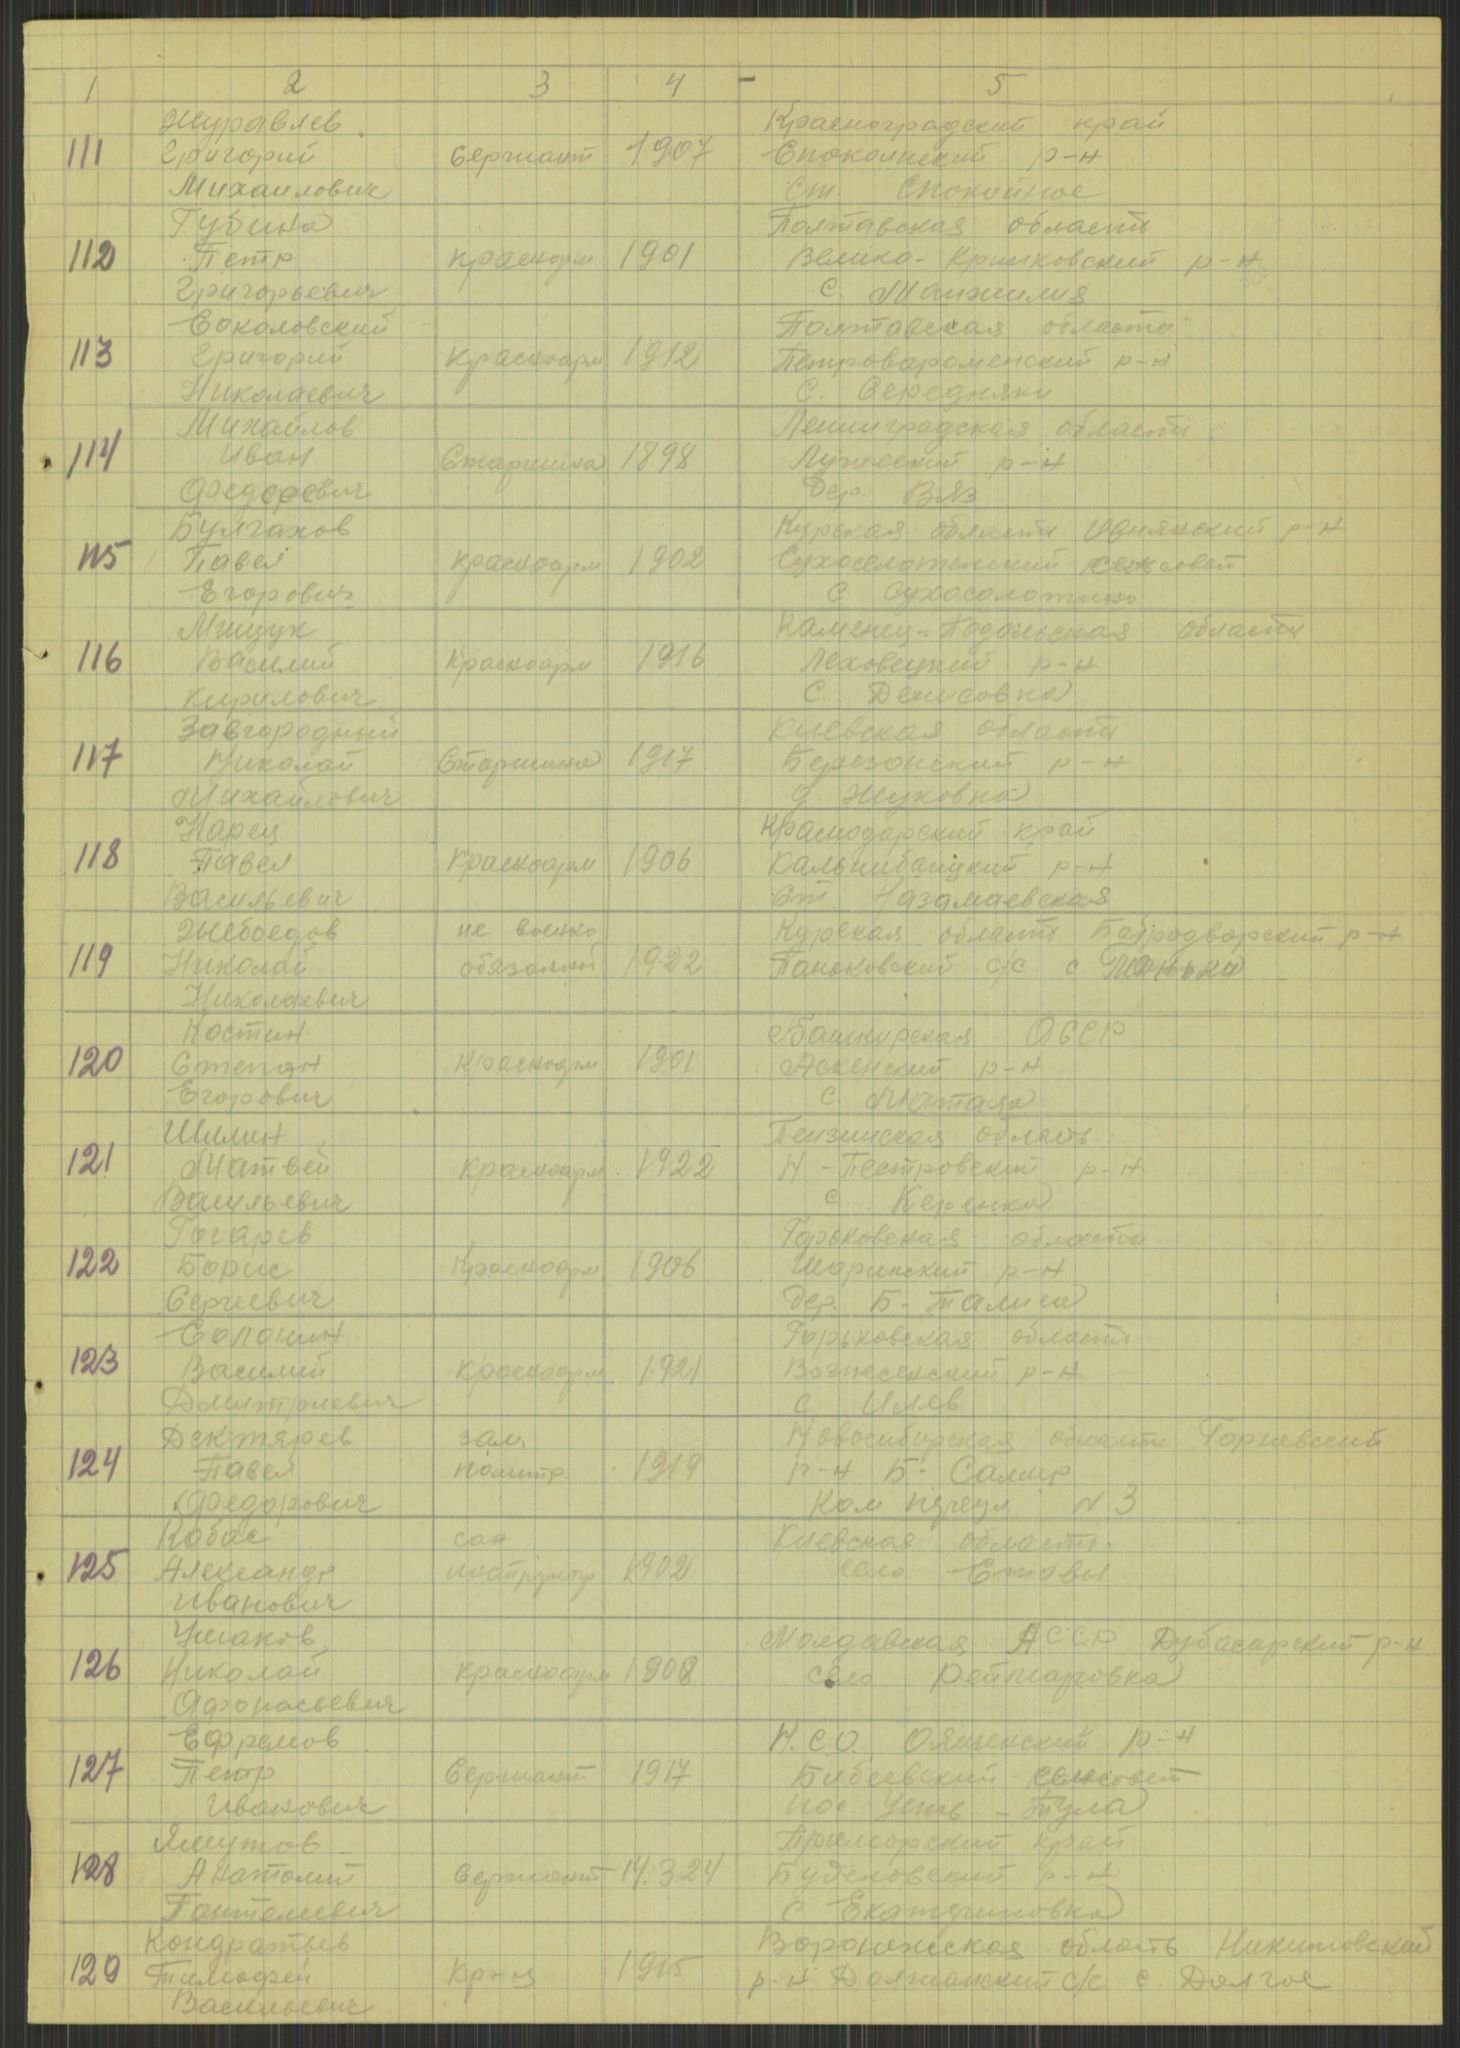 1 2 3 4 - 5
Журавлев Красноградский край
111 Григорий Сержант 1907 Спокоинский р-н
Михаилович ст. Спокойное
Губина Полтавская область
112 Петр Красноарм 1901 Велико-Кринковский р-н
Григорьевич с. Манжилия
Сокаловский Полтавская область
113 Григорий Красноарм 1912 Петровароменский р-н
Николаевич с. Середняки
Михайлов Ленинградская область
114 Иван Старшина 1898 Лужский р-н
Федорович дер. Вяз
Булгаков Курская область Ивнянский р-н
115 Павел Красноарм 1902 сельсовет
Егорович с. Сухосолотино
Мищук Каменец-Подольская область
116 Василий Красноарм 1916 Ляховецкий р-н
Кирилович с. Денисовка
Завгородный Киевская область
117 Николай Старшина 1917 Березанский р-н
Михайлович д Жуковка
Карец Краснодарский край
118 Павел Красноарм 1906 р-н
Васильевич ст.
Дыбоедов не военно Курская область р-н
119 Николай обязаный 1922 Паньковский с/с с Паньки
Николаевич
Костин Башкирская АССР
120 Степан Красноарм 1901 Аскенский р-н
Егорович с. Матала
Шилин Пензинская область
121 Матвей Красноарм. 1922 Н-Пестровский р-н
Васильевич с. Керенка
Гогарев Горьковская область
122 Борис Красноарм 1906 Шаринский р-н
Сергеевич дер. Б-Талица
Сапонин Горьковская область
123 Василий Красноарм. 1921 Вознесенский р-н
Дмитриевич с Илев
Дектярев зам. Новосибирская область
124 Павел политр. 1919 р-н Б-
Федорович N 3
Кобас сан Киевская область
125 Александр инструктор 1902 село Ставы
Иванович
Ушаков Молдавская АССР Дубасарский р-н
126 Николай Красноарм 1908 село Реймаровка
Афонасьевич
Ефремов Н.С.О. Ояшенский р-н
127 Петр Сержант 1917 Бибеевский сельсовет
Иванович пос. Усть-Тула
Яшутов Приморский край
128 Анатолий Сержант 14.3.24 Буденовский р-н
Пантелеевич с Екатериновка
Кондратьев Воронежская область Никитовский
129 Тимофей Кр-ц 1915 р-н Должанский с/с с. Долгое
Васильевич